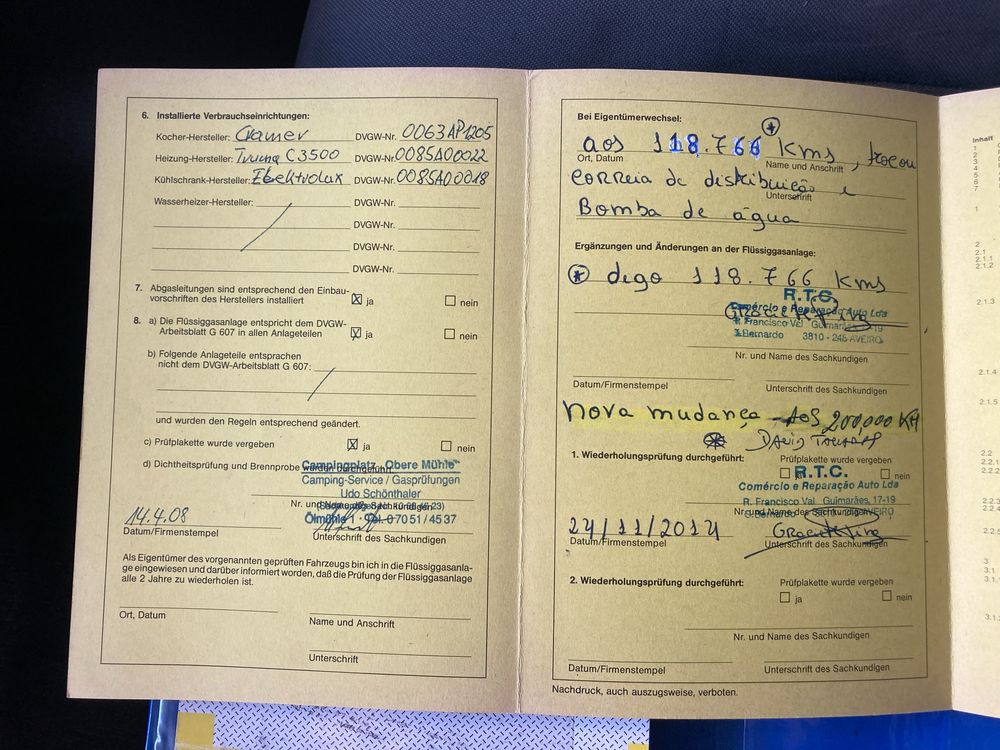 6. Installierte Verbrauchseinrichtungen:
Kocher-Hersteller: Cramer DVGW-Nr. 0063AP1205
Heizung-Hersteller: Truma C3500 DVGW-Nr. 0085A00022
Kühlschrank-Hersteller: Elektrolux DVGW-Nr. 0085A00018
Wasserheizer-Hersteller: DVGW-Nr.
DVGW-Nr.
DVGW-Nr.
DVGW-Nr.
7. Abgasleitungen sind entsprechend den Einbau-
vorschriften des Herstellers installiert ja nein
8. a) Die Flüssiggasanlage entspricht dem DVGW-
Arbeitsblatt G 607 in allen Anlageteilen ja nein
b) Folgende Anlageteile entsprachen
nicht dem DVGW-Arbeitsblatt G 607:
und wurden den Regeln entsprechend geändert.
c) Prüfplakette wurde vergeben ja nein
d) Dichtheitsprüfung und Brennprobe wurden durchgeführt
Campingplatz "Obere Mühle"
Camping-Service / Gasprüfungen
Udo Schönthaler
Nr. und Name des Sachkundigen
Ölmühle 1 · Tel. 0 70 51 / 45 37
14.4.08
Datum/Firmenstempel Unterschrift des Sachkundigen
Als Eigentümer des vorgenannten geprüften Fahrzeugs bin ich in die Flüssiggasanla-
ge eingewiesen und darüber informiert worden, daß die Prüfung der Flüssiggasanlage
alle 2 Jahre zu wiederholen ist.
Ort, Datum Name und Anschrift
Unterschrift
Bei Eigentümerwechsel:
aos 118.766 Kms, trocou
Ort, Datum Name und Anschrift
correia de distribuição e
Unterschrift
Bomba de água
Ergänzungen und Änderungen an der Flüssiggasanlage:
digo 118.766 Kms
R.T.C.
Comércio e Reparação Auto Lda
R. Francisco Val Guimarães, 17-19
S. Bernardo 3810 - 245 AVEIRO
Nr. und Name des Sachkundigen
Datum/Firmenstempel Unterschrift des Sachkundigen
nova mudança - Aos 200,000 KM
DAVID
1. Wiederholungsprüfung durchgeführt: Prüfplakette wurde vergeben
ja nein
R.T.C.
Comércio e Reparação Auto Lda
R. Francisco Val Guimarães, 17-19
Nr. und Name des Sachkundigen
S. Bernardo AVEIRO
24/11/2014
Datum/Firmenstempel Unterschrift des Sachkundigen
2. Wiederholungsprüfung durchgeführt: Prüfplakette wurde vergeben
ja nein
Nr. und Name des Sachkundigen
Datum/Firmenstempel Unterschrift des Sachkundigen
Nachdruck, auch auszugsweise, verboten.
Inhalt
1
2
3
4
5
6
7
1
2
2.1
2.1.1
2.1.2
2.1.3
2.1.4
2.1.5
2.2
2.2.1
2.2.2
2.2.
3
3.1
3.1.
3.1.